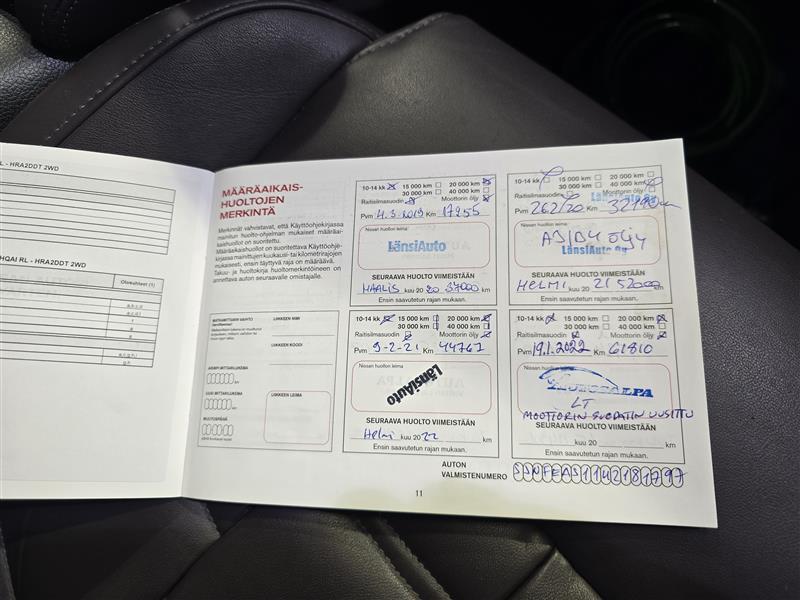 RL - HRA2DDT 2WD
HQAI RL - HRA2DDT 2WD
Olosuhteet (1)
a,b,c,d
a,c,d,i
f
a
a
a,c,g,h,i
g,h
MÄÄRÄAIKAIS-
HUOLTOJEN
MERKINTÄ
Merkinnät vahvistavat, että Käyttöohjekirjassa
mainitun huolto-ohjelman mukaiset määräai-
kaishuollot on suoritettu.
Määräaikaishuollot on suoritettava Käyttöohje-
kirjassa mainittujen kuukausi- tai kilometrirajojen
mukaisesti, ensin täyttyvä raja on määräävä.
Takuu- ja huoltokirja huoltomerkintöineen on
annettava auton seuraavalle omistajalle.
MATKAMITTARIN VAIHTO
LIIKKEEN NIMI
LIIKKEEN KOODI
AIEMPI MITTARILUKEMA
km
UUSI MITTARILUKEMA
LIIKKEEN LEIMA
km
MUUTOSPÄIVÄ
10-14 kk 15 000 km 20 000 km
30 000 km 40 000 km
Raitisilmasuodin Moottorin öljy
Pvm 4.3.2019 Km 17255
Nissan huollon leima
LänsiAuto
SEURAAVA HUOLTO VIIMEISTÄÄN
MAALIS kuu 20 20 37000 km
Ensin saavutetun rajan mukaan.
10-14 kk 15 000 km 20 000 km
30 000 km 40 000 km
Raitisilmasuodin Moottorin öljy
LänsiAuto Oy
Pvm 262/20 Km
Nissan huollon leima
A3/B4 öljy
LänsiAuto Oy
SEURAAVA HUOLTO VIIMEISTÄÄN
HELMI kuu 20 21 52000 km
Ensin saavutetun rajan mukaan.
10-14 kk 15 000 km 20 000 km
30 000 km 40 000 km
Raitisilmasuodin Moottorin öljy
Pvm 9-2-21 Km 44767
Nissan huollon leima
LänsiAuto
SEURAAVA HUOLTO VIIMEISTÄÄN
Helmi kuu 20 22 km
Ensin saavutetun rajan mukaan.
10-14 kk 15 000 km 20 000 km
30 000 km 40 000 km
Raitisilmasuodin Moottorin öljy
Pvm 19.1.2022 Km 61810
Nissan huollon leima
AUTOSALPA
LT
MOOTTORIN SUODATIN UUSITTU
SEURAAVA HUOLTO VIIMEISTÄÄN
kuu 20 km
Ensin saavutetun rajan mukaan.
AUTON
VALMISTENUMERO SJNFEAJ11U2181797
11